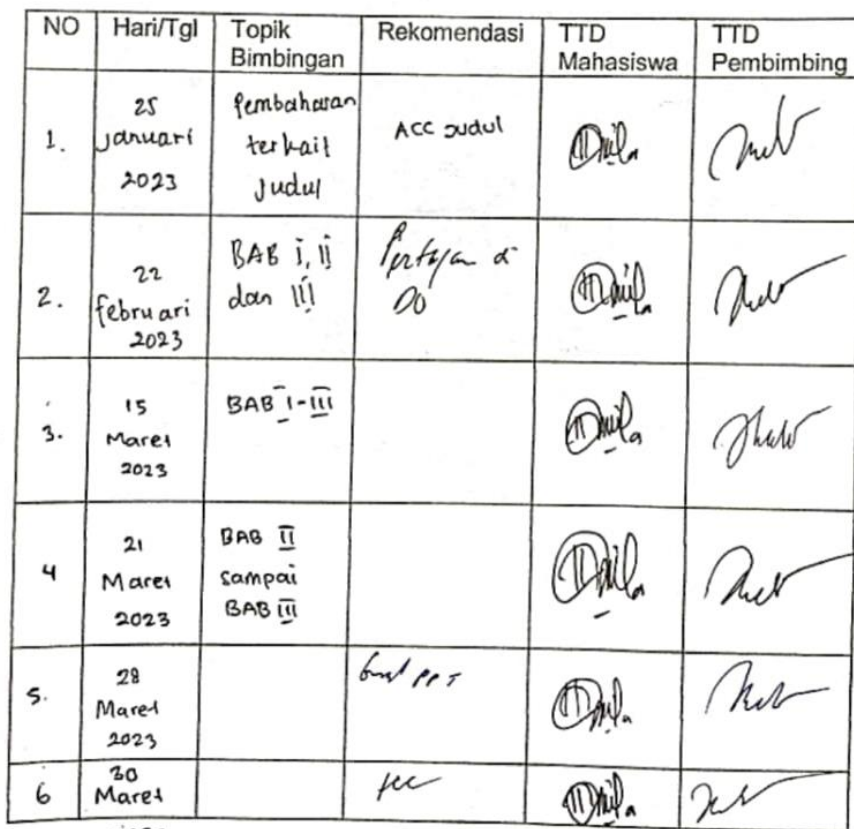 NO Hari/Tgl Topik Bimbingan Rekomendasi TTD Mahasiswa TTD Pembimbing
1. 25 januari 2023 Pembaharan terkait Judul ACC Judul
2. 22 februari 2023 BAB I, II dan III DO
3. 15 Maret 2023 BAB I-III
4 21 Maret 2023 BAB II sampai BAB III
5. 28 Maret 2023 PPT
6 30 Maret